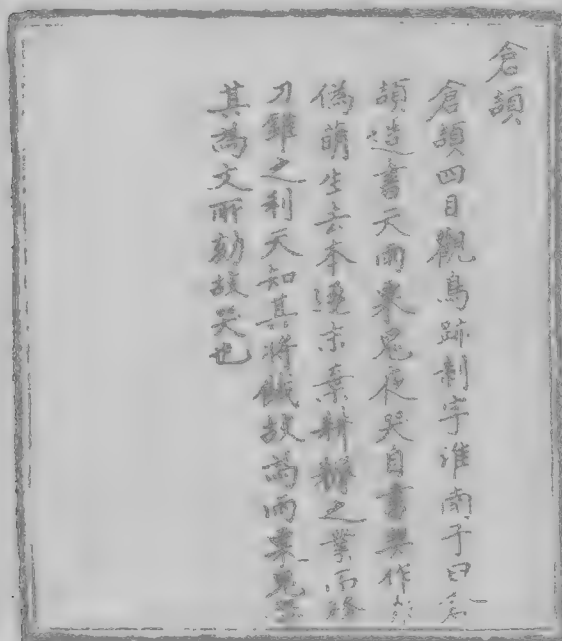 倉頡
倉頡四目觀鳥跡制字淮南子曰倉
頡造書天雨粟鬼夜哭自書契作詐
偽萌生去本趨末棄耕耨之業而務
刀錐之利天知其將餓故為雨粟鬼恐
其為文所劾故哭也